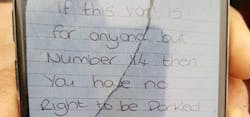 If this van is
for anyone but
Number 14 then
You have no
Right to be Parked